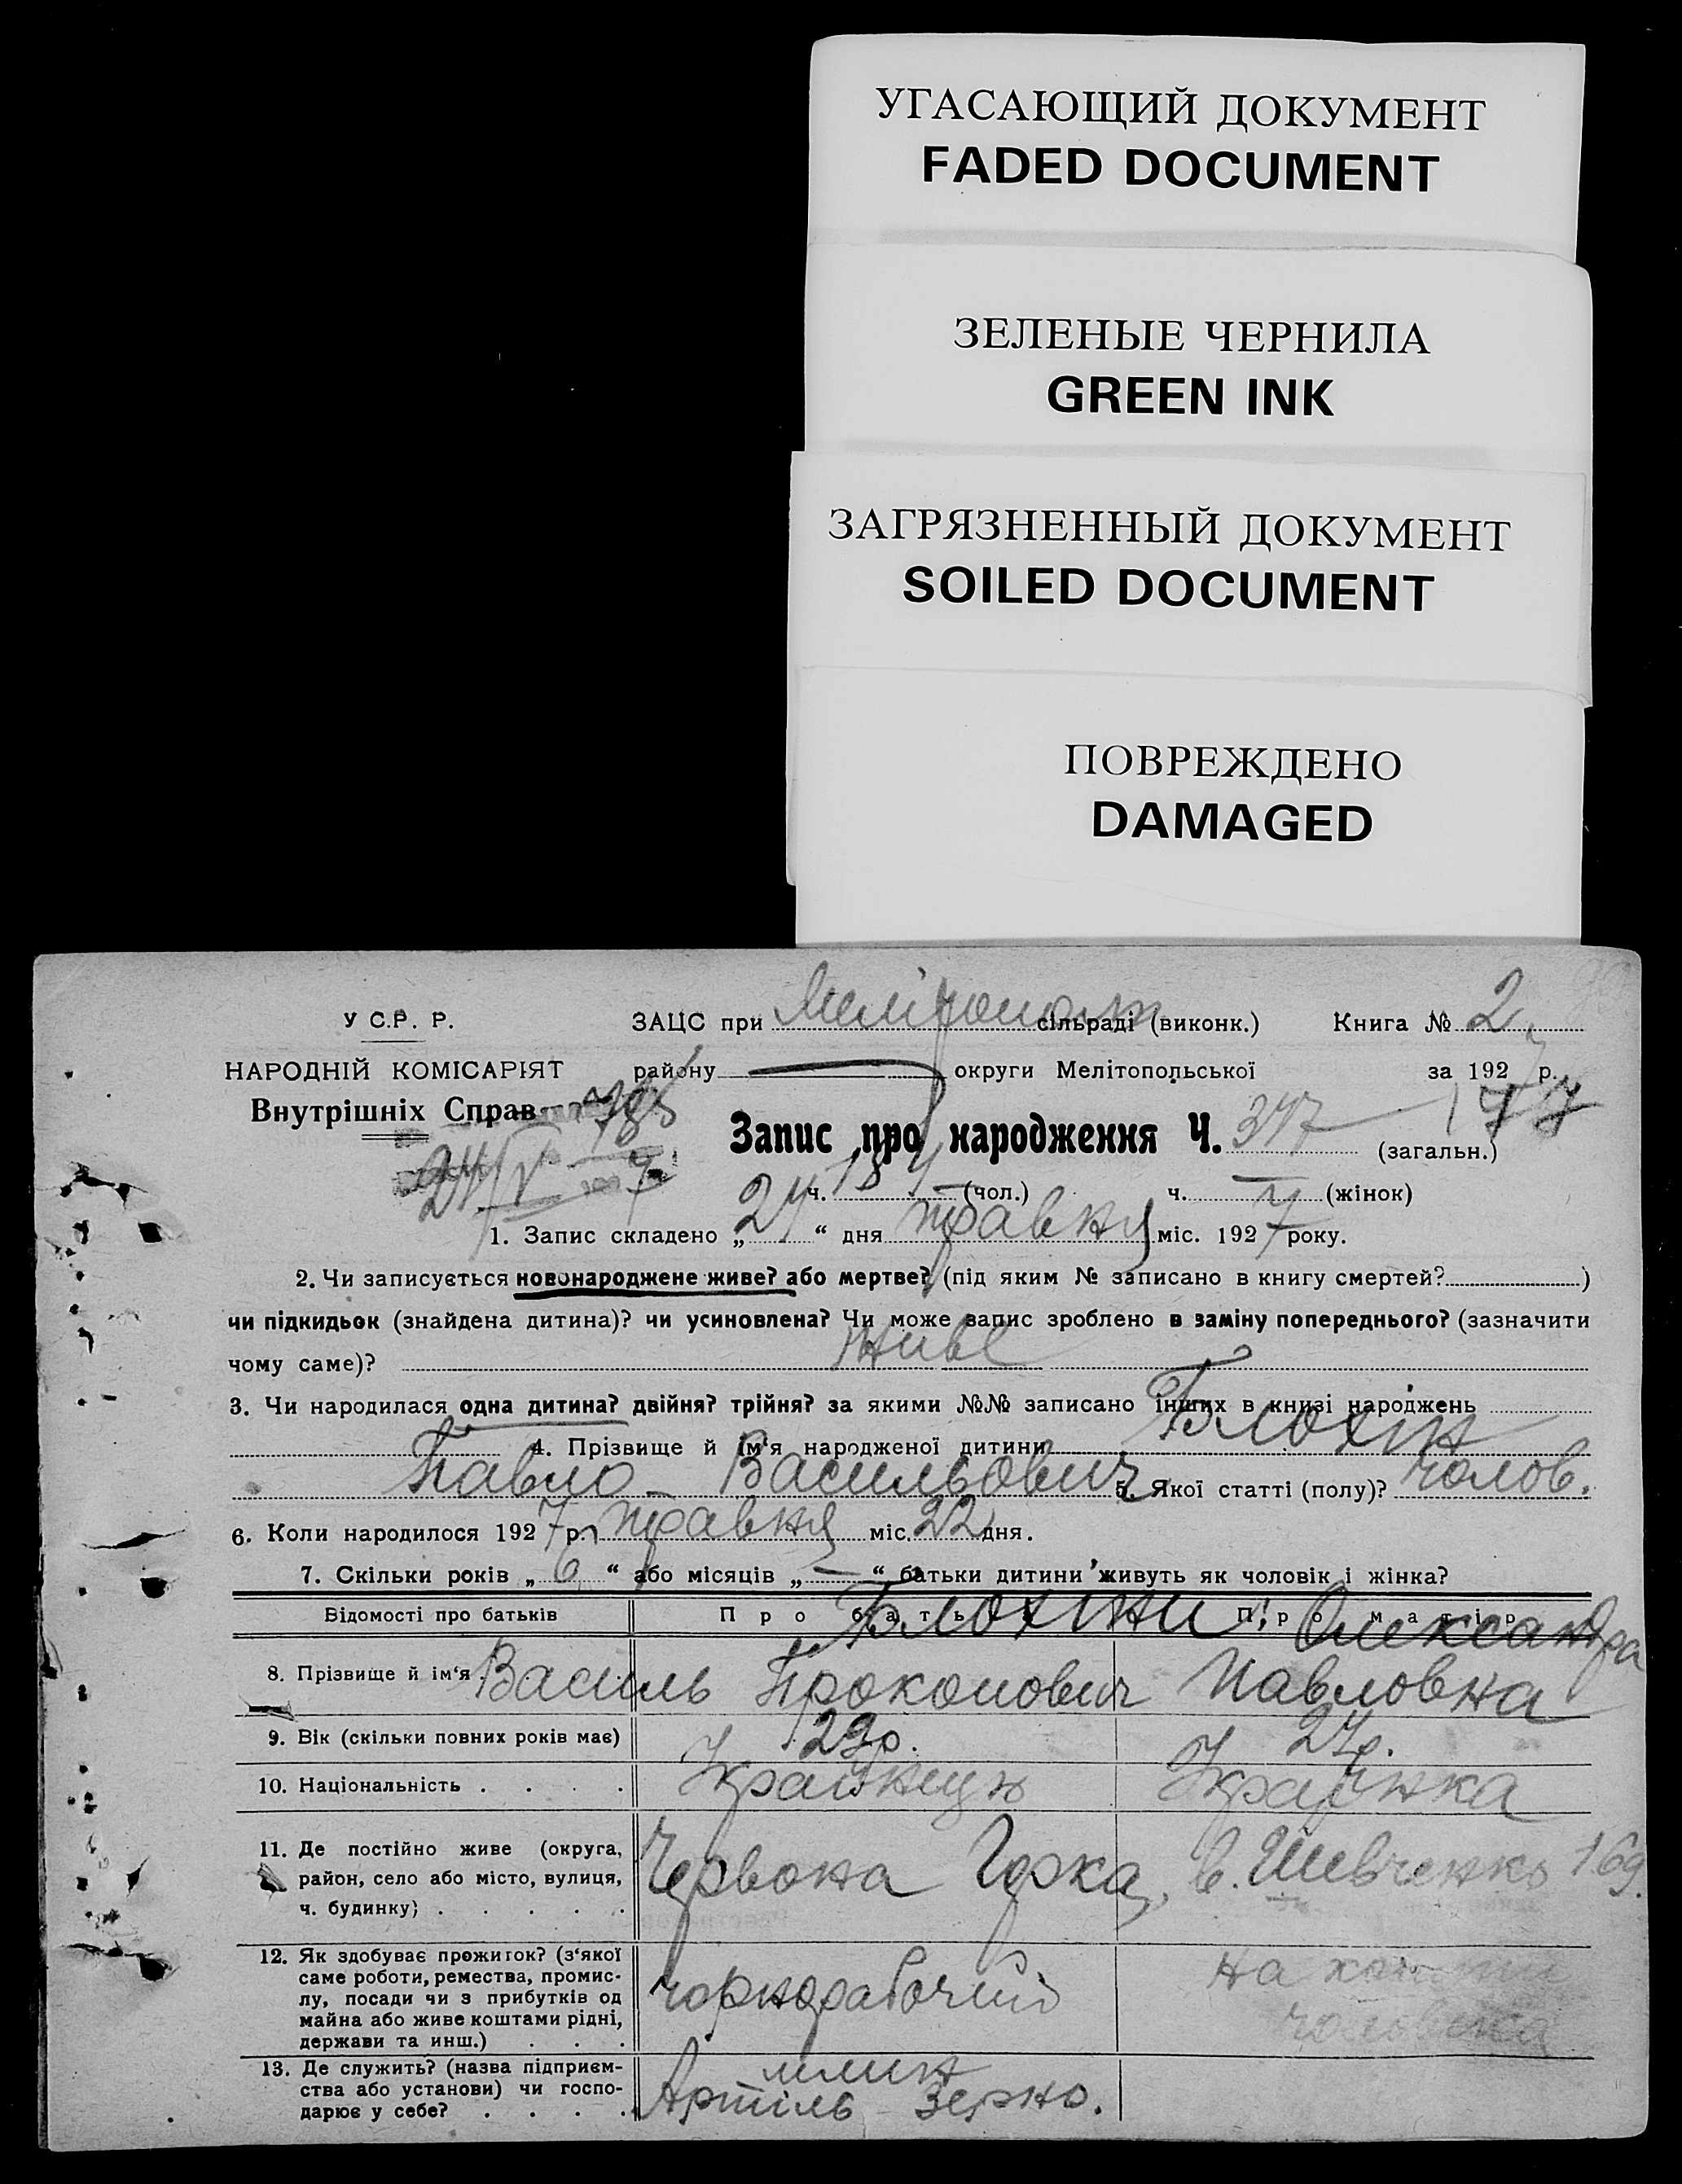 УГАСАЮЩИЙ ДОКУМЕНТ
FADED DOCUMENT
ЗЕЛЕНЫЕ ЧЕРНИЛА
GREEN INK
ЗАГРЯЗНЕННЫЙ ДОКУМЕНТ
SOILED DOCUMENT
ПОВРЕЖДЕНО
DAMAGED
У С.Р. Р.
ЗАЦС при сільраді (виконк.) Книга № 2
НАРОДНІЙ КОМІСАРІЯТ району — округи Мелітопольської за 1927 р.
Внутрішніх Справ
Запис про народження Ч. 347 (загальн.)
ч. (чол.) ч. — (жінок)
1. Запис складено „24“ дня травня міс. 1927 року.
2. Чи записується новонароджене живе? або мертве? (під яким № записано в книгу смертей? )
чи підкидьок (знайдена дитина)? чи усиновлена? Чи може запис зроблено в заміну попереднього? (зазначити
чому саме)? живе
3. Чи народилася одна дитина? двійня? трійня? за якими №№ записано інших в книзі народжень
4. Прізвище й ім'я народженої дитини Блохін
Павло Васильович 5. Якої статті (полу)? чолов.
6. Коли народилося 1927 р. травня міс. 22 дня.
7. Скільки років „6“ або місяців „—“ батьки дитини живуть як чоловік і жінка?
Відомості про батьків Про батька Про матір
Блохіни Олександра
8. Прізвище й ім'я Василь Прокопович Павловна
9. Вік (скільки повних років має) 29р. 27р.
10. Національність . . . . Українець Українка
11. Де постійно живе (округа,
район, село або місто, вулиця,
ч. будинку) . . . . .
Червона Горка, в. Шевченко 169.
12. Як здобуває прожиток? (з'якої
саме роботи, ремества, промис-
лу, посади чи з прибутків од
майна або живе коштами рідні,
держави та инш.) . . .
чорнорабочий
на
чоловіка
13. Де служить? (назва підприєм-
ства або установи) чи госпо-
дарює у себе? . . . .
млин
Артіль Зерно.